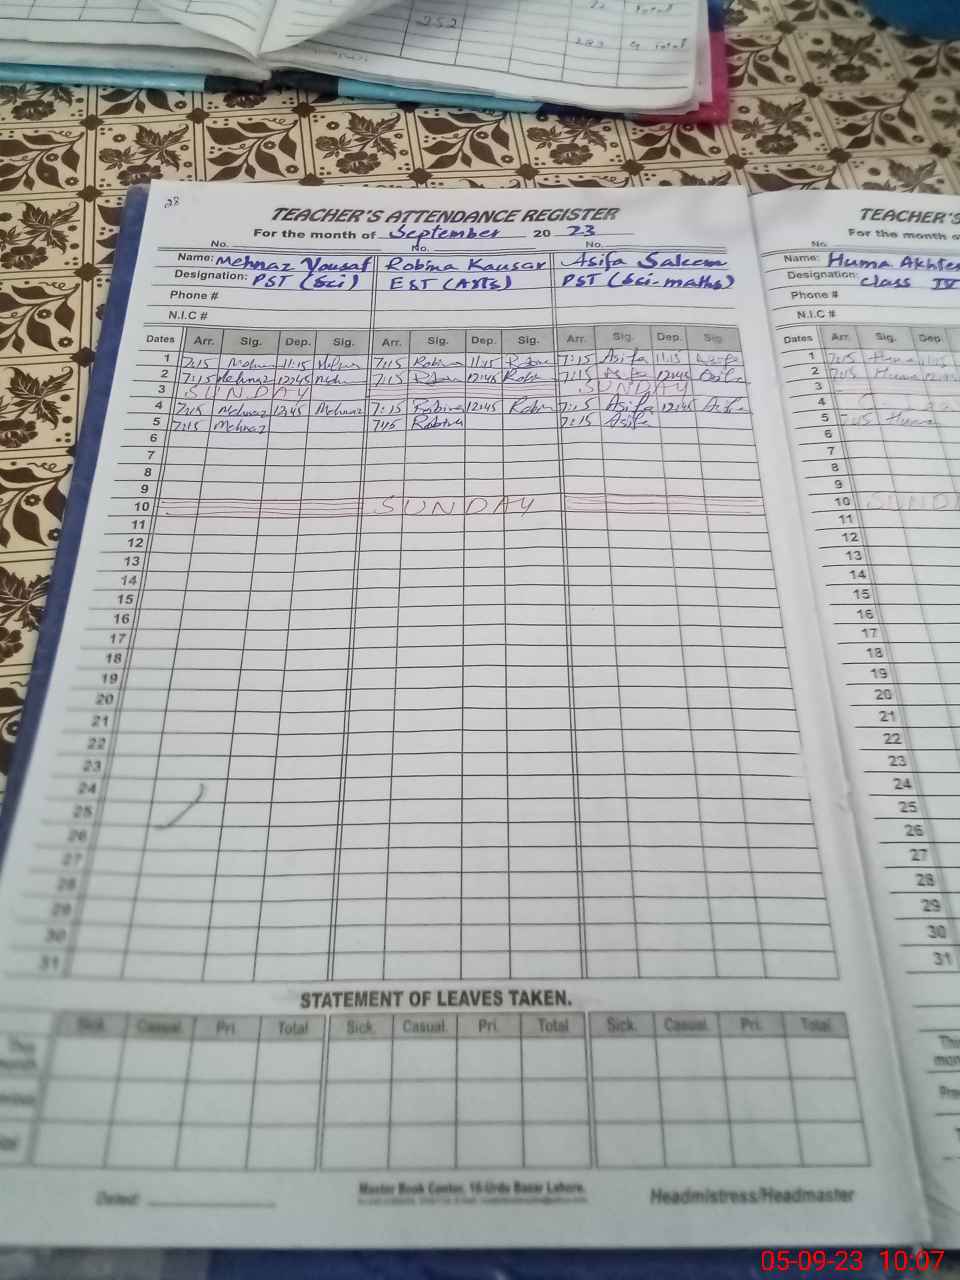 252
22 Total
283 9 Total
28
TEACHER'S ATTENDANCE REGISTER
For the month of September 20 23
No. No. No.
Name: Mehnaz Yousaf Robina Kausar Asifa Saleem
Designation: PST (Sci) EST (Arts) PST (Sci-maths)
Phone #
N.I.C #
Dates Arr. Sig. Dep. Sig. Arr. Sig. Dep. Sig. Arr. Sig. Dep. Sig.
1 7:15 11:15 7:15 Robina 11:15 7:15 Asifa 11:15 Asifa
2 7:15 Mehnaz 12:45 7:15 12:45 7:15 Asifa 12:45 Asifa
3 SUNDAY SUNDAY
4 7:15 Mehnaz 12:45 Mehnaz 7:15 Robina 12:45 7:15 Asifa 12:45 Asifa
5 7:15 Mehnaz 7:15 Robina 7:15 Asifa
6
7
8
9
10 SUNDAY
11
12
13
14
15
16
17
18
19
20
21
22
23
24
25
26
27
28
29
30
31
STATEMENT OF LEAVES TAKEN.
Sick. Casual. Pri. Total Sick. Casual. Pri. Total Sick. Casual. Pri. Total
This month.
Dated:
Master Book Center, 16-Urdu Bazar Lahore.
Headmistress/Headmaster
TEACHER'S
For the month
No.
Name: Huma Akhter
Designation: Class IV
Phone #
N.I.C #
Dates Arr. Sig. Dep.
1 7:15 Huma 11:15
2 7:15 Huma 12:45
3
4
5 7:15 Huma
6
7
8
9
10 SUND
11
12
13
14
15
16
17
18
19
20
21
22
23
24
25
26
27
28
29
30
31
05-09-23 10:07